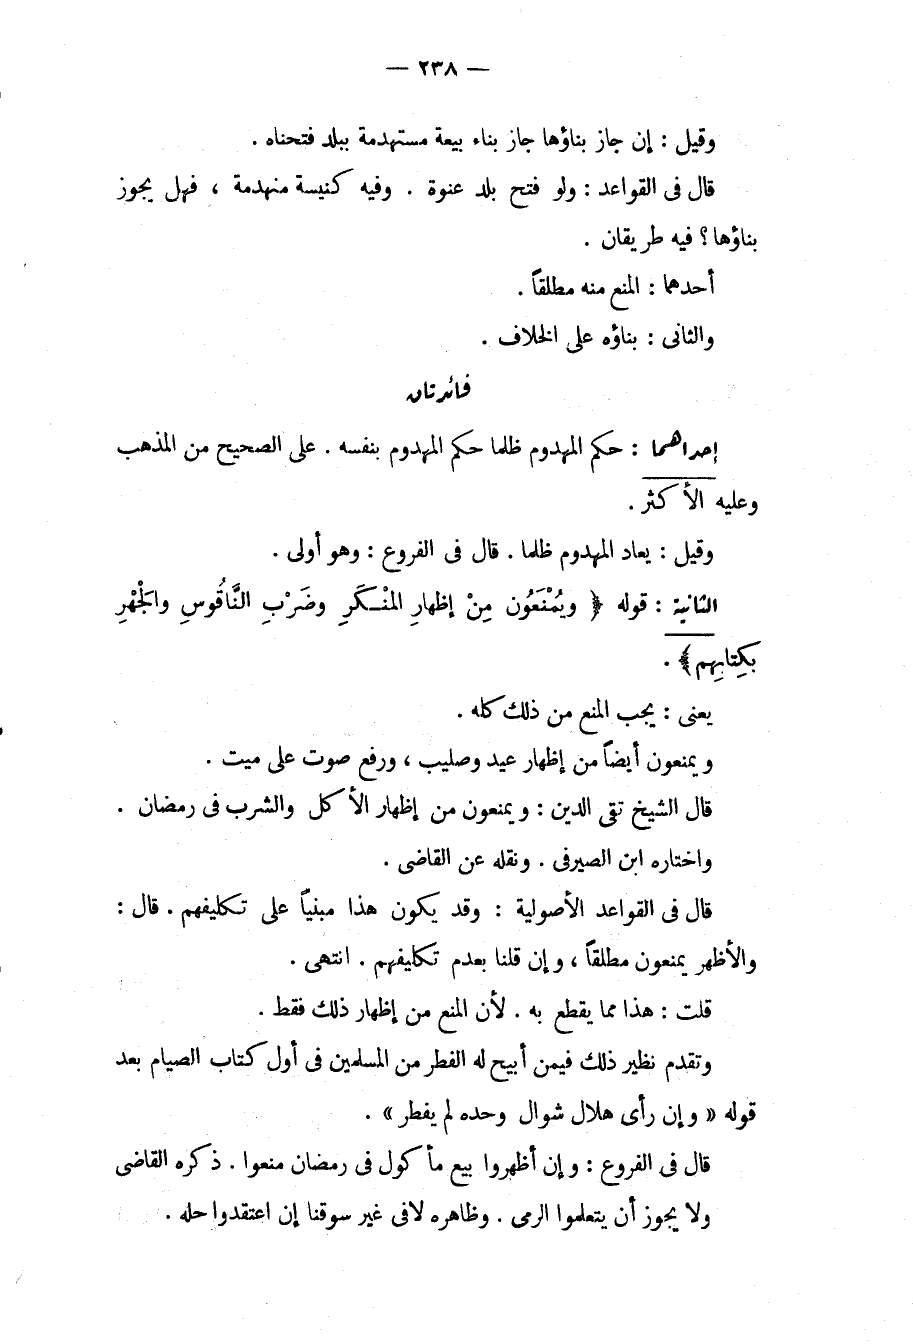 — ٢٣٨ —
وقيل : إن جاز بناؤها جاز بناء بيعة مستهدمة ببلد فتحناه .
قال فى القواعد : ولو فتح بلد عنوة . وفيه كنيسة منهدمة ، فهل يجوز
بناؤها ؟ فيه طريقان .
أحدهما : المنع منه مطلقاً .
والثانى : بناؤه على الخلاف .
فائدتان
إحداهما : حكم المهدوم ظلما حكم المهدوم بنفسه . على الصحيح من المذهب
وعليه الأكثر .
وقيل : يعاد المهدوم ظلما . قال فى الفروع : وهو أولى .
الثانية : قوله ﴿ ويُمْنَعُون مِنْ إظهارِ المنْكَرِ وضَرْبِ النَّاقُوسِ والجَهْرِ
بكِتابِهِم ﴾ .
يعنى : يجب المنع من ذلك كله .
ويمنعون أيضاً من إظهار عيد وصليب ، ورفع صوت على ميت .
قال الشيخ تقى الدين : ويمنعون من إظهار الأكل والشرب فى رمضان .
واختاره ابن الصيرفى . ونقله عن القاضى .
قال فى القواعد الأصولية : وقد يكون هذا مبنياً على تكليفهم . قال :
والأظهر يمنعون مطلقاً ، وإن قلنا بعدم تكليفهم . انتهى .
قلت : هذا مما يقطع به . لأن المنع من إظهار ذلك فقط .
وتقدم نظير ذلك فيمن أبيح له الفطر من المسلمين فى أول كتاب الصيام بعد
قوله « وإن رأى هلال شوال وحده لم يفطر » .
قال فى الفروع : وإن أظهروا بيع مأكول فى رمضان منعوا . ذكره القاضى
ولا يجوز أن يتعلموا الرمى . وظاهره لا فى غير سوقنا إن اعتقدوا حله .